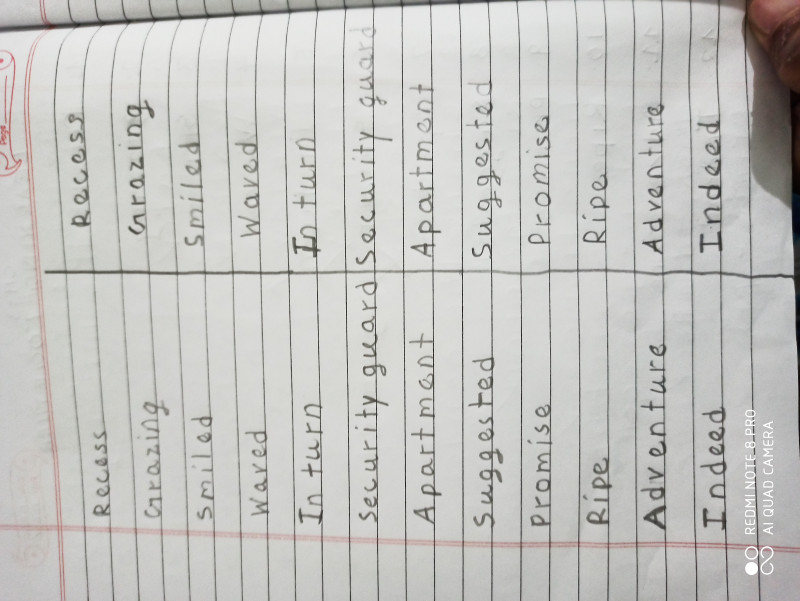 Page
Recess Recess
Grazing Grazing
Smiled Smiled
Waved Waved
In turn In turn
Security guard Security guard
Apartment Apartment
Suggested Suggested
Promise Promise
Ripe Ripe
Adventure Adventure
Indeed Indeed
REDMI NOTE 8 PRO
AI QUAD CAMERA